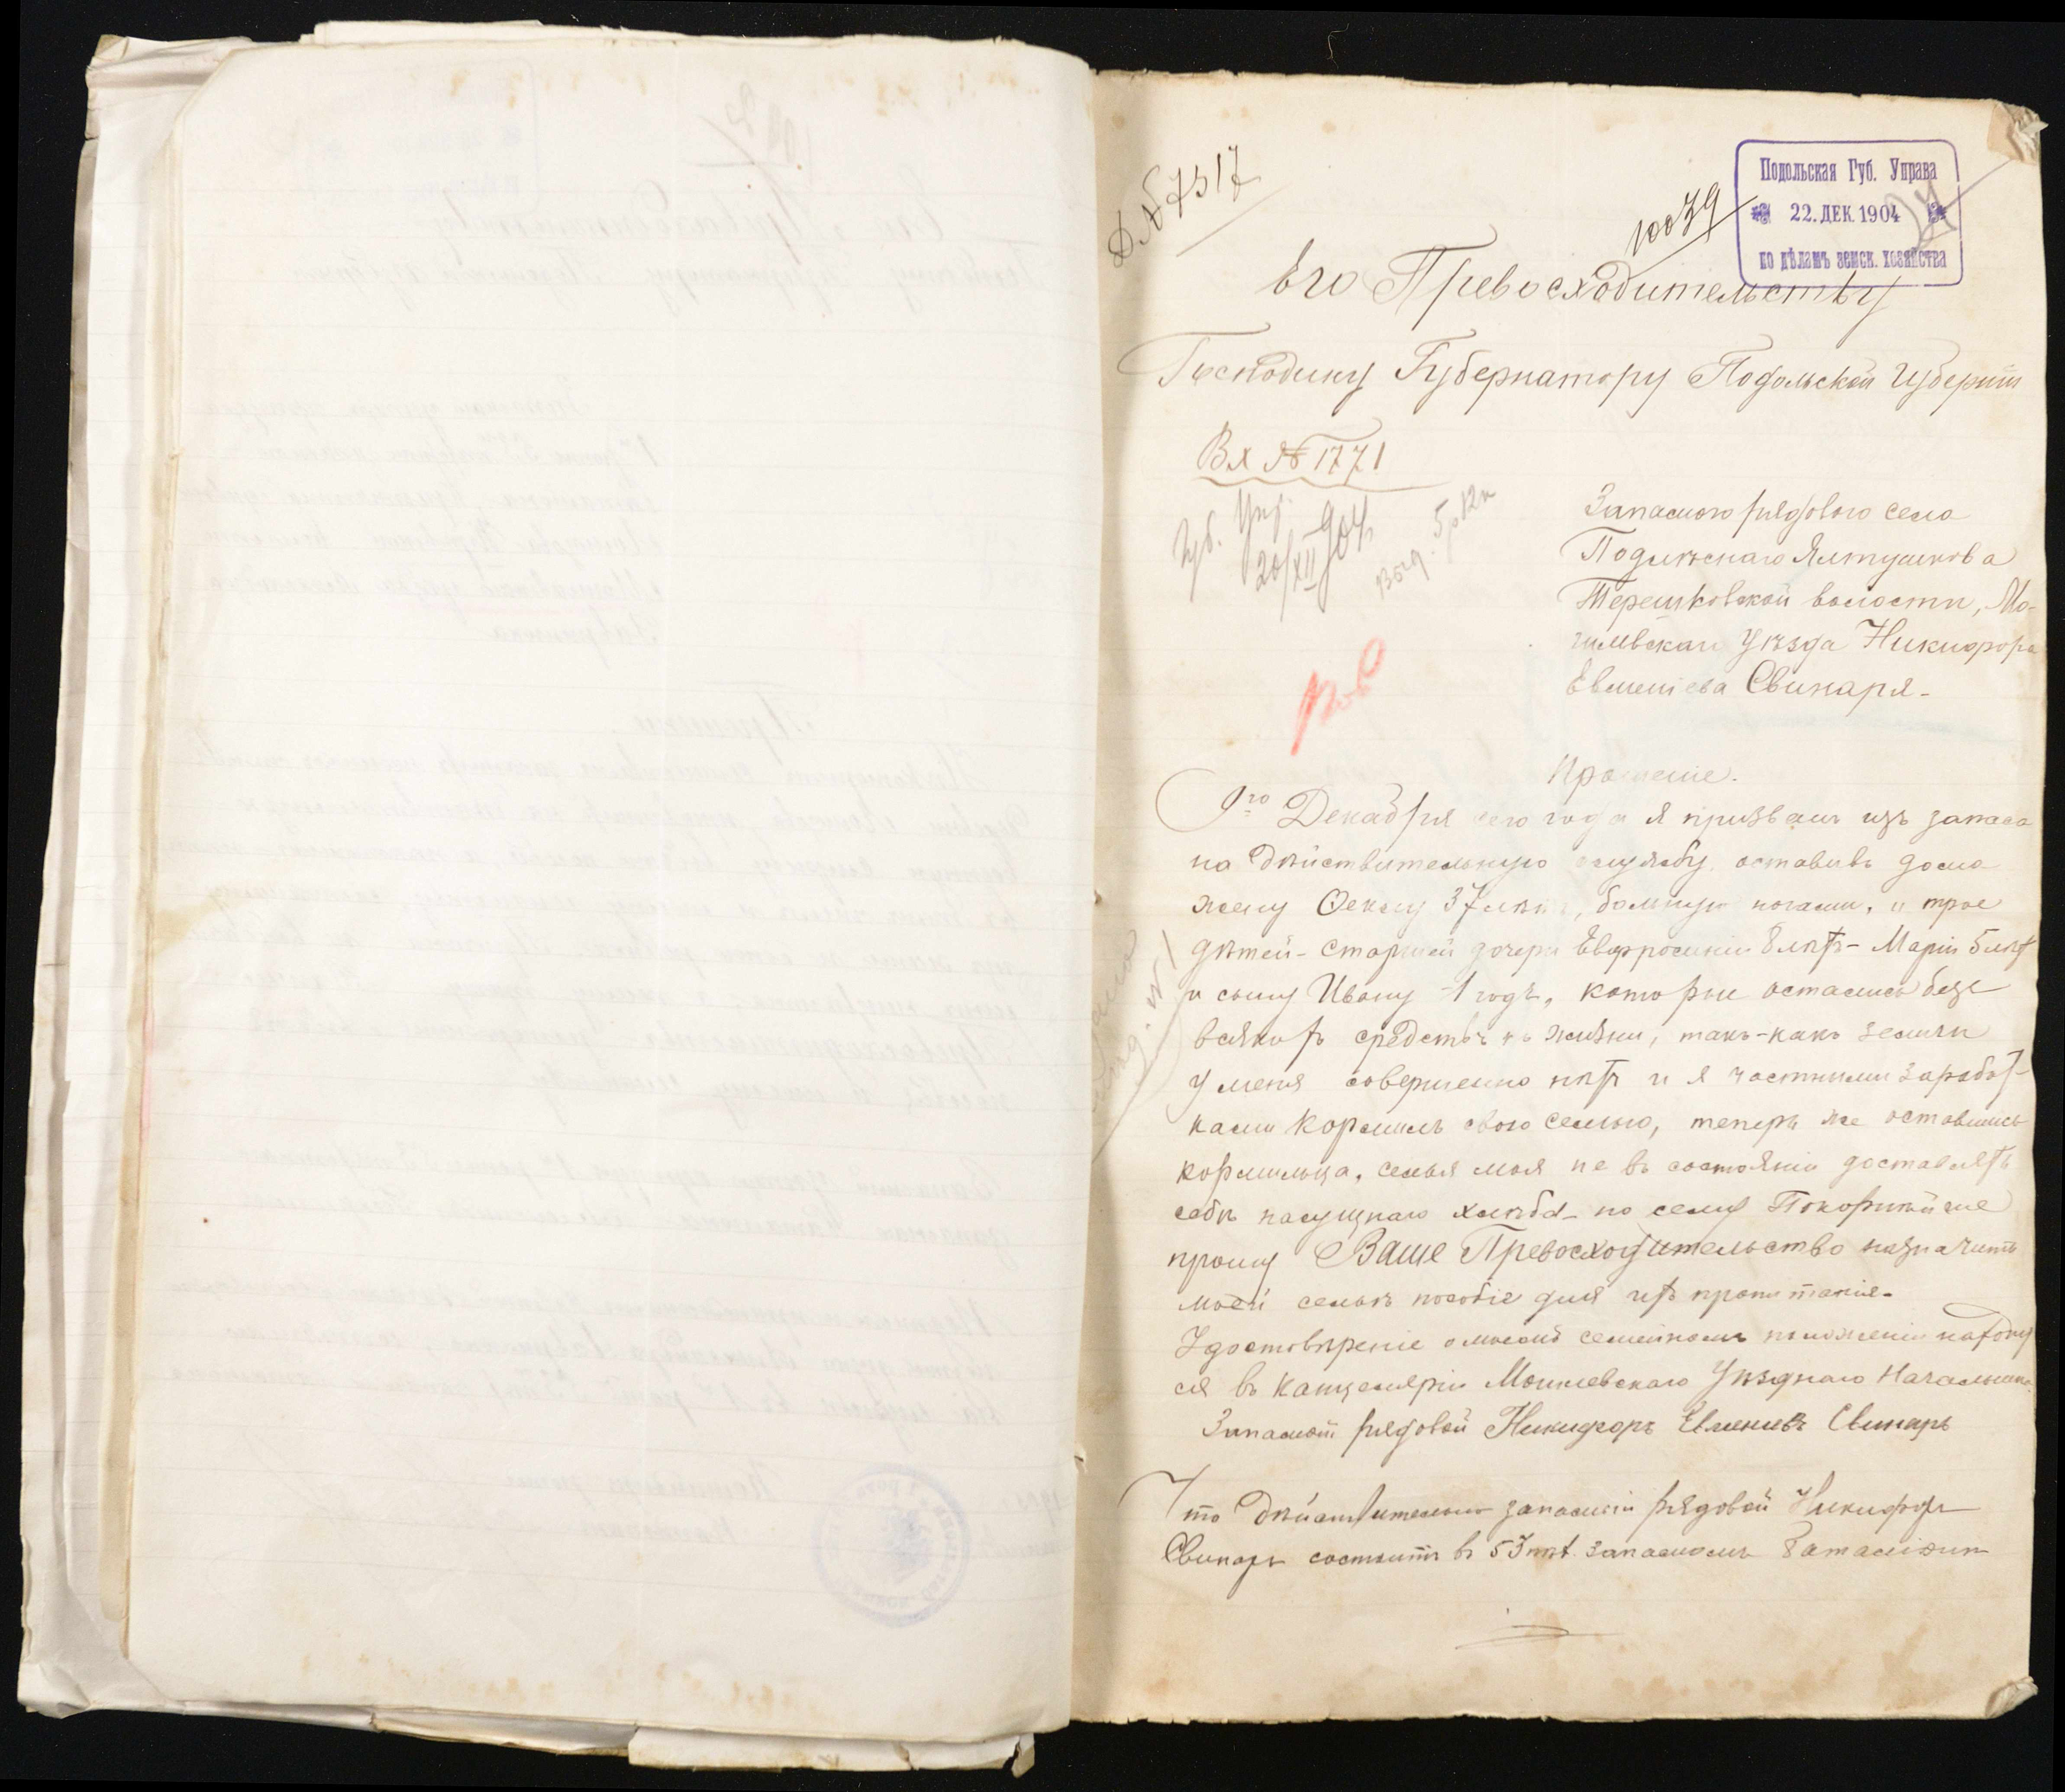 Д № 7317
10039
Подольская Губ. Управа
22. ДЕК. 1904
по дѣламъ земск. хозяйства
24
Его Превосходительству
Господину Губернатору Подольской Губерніи
Вх № 1771
Губ. Упр.
20/XII 904
Запасного рядового села
Подлѣснаго Ялтушкова
Терешковской волости, Мо-
гилевскаго Уѣзда Никифора
Евменіева Свинаря.
Прошеніе.
9го Декабря сего года я призванъ изъ запаса
на дѣйствительную службу, оставивъ дома
жену Феклу 37 лѣтъ, больную ногами, и трое
дѣтей - старшей дочери Евфросиніи 8 лѣтъ - Маріи 5 лѣтъ
и сыну Ивану - 1 годъ, которые остались безъ
всякихъ средствъ къ жизни, такъ-какъ земли
у меня совершенно нѣтъ и я частными заработ-
ками кормилъ свою семью, теперь же оставшись
кормильца, семья моя не въ состояніи доставлять
себѣ насущнаго хлѣба - по сему Покорнѣйше
прошу Ваше Превосходительство назначить
моей семьѣ пособіе для ихъ пропитанія.
Удостовѣреніе о моемъ семейномъ положеніи находит
ся въ канцеляріи Могилевскаго Уѣзднаго Начальника.
Запасной рядовой Никифоръ Евменіевъ Свинарь
Что дѣйствительно запасный рядовой Никифоръ
Свинарь состоитъ въ 53 пѣх. запасномъ баталіонѣ